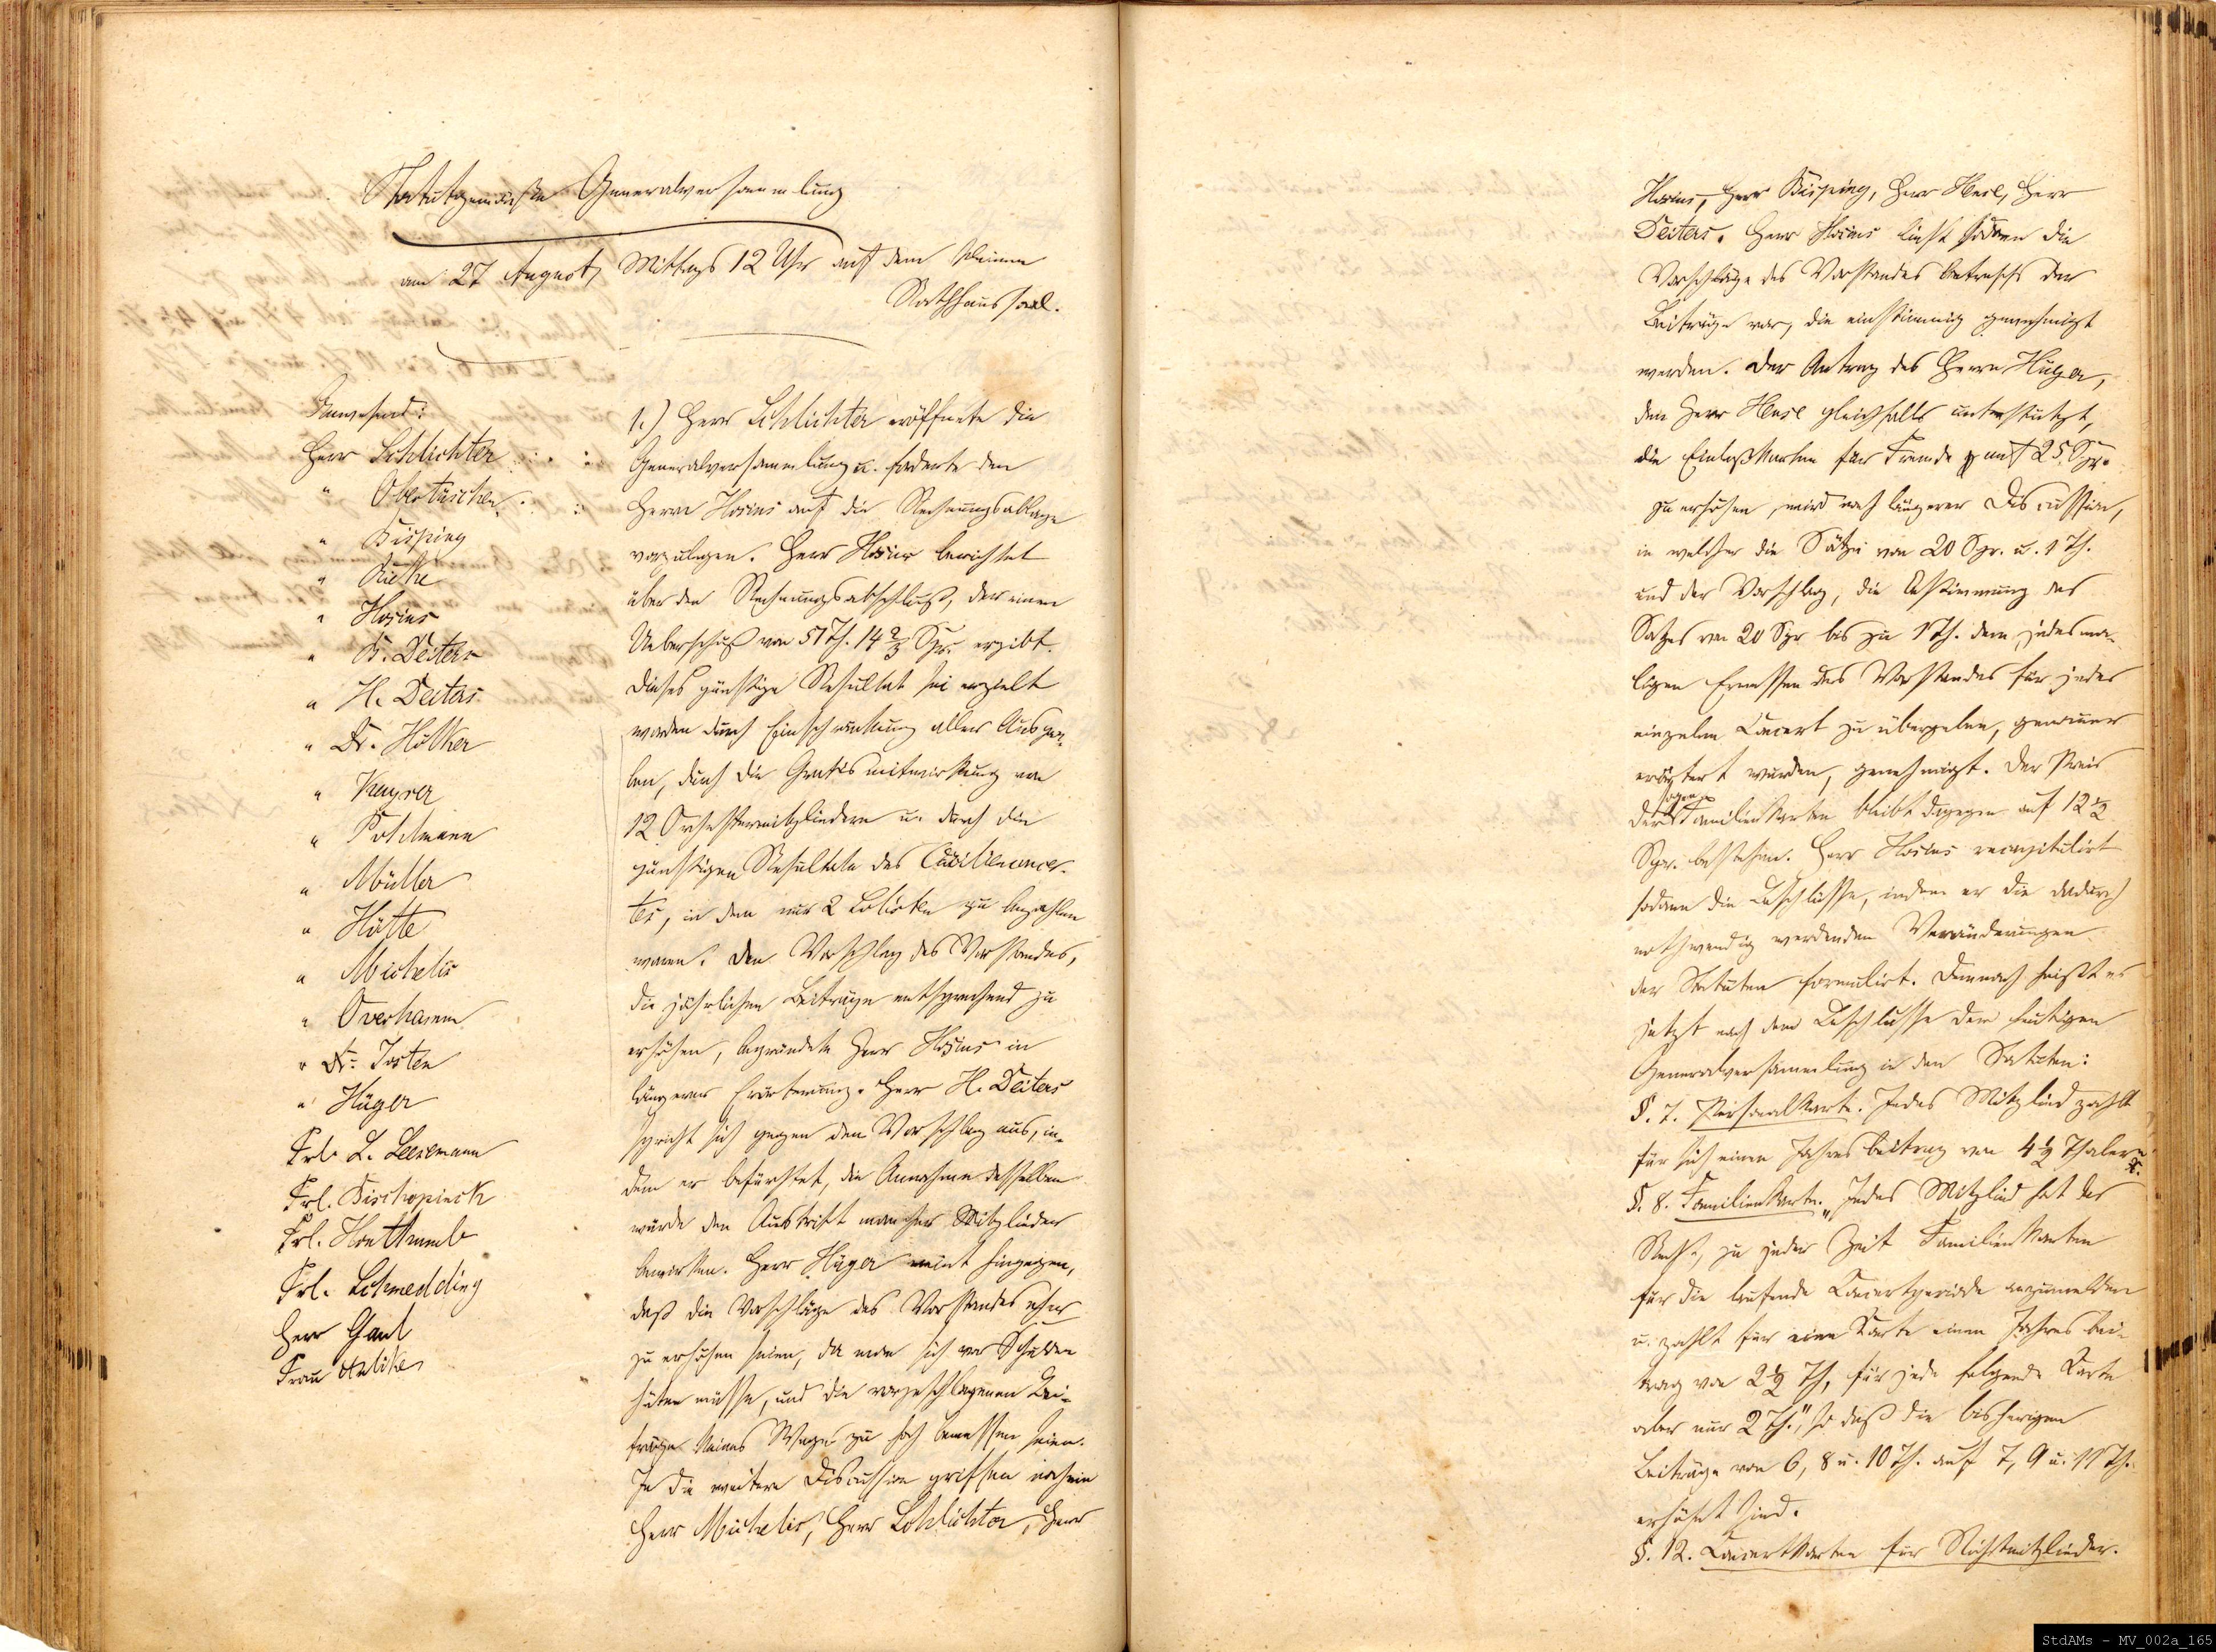 Statutgemäße Generalversammlung
am 27 August, Mittags 12 Uhr auf dem kleinen
Rathhaussaal.
Anwesend:
Herr Schlichter
" Obertüschen
" Bisping
" Rüthe
" Hosius
" Dr. Deiters
" H. Deiters
" Dr. Hölker
" Kayser
" Pohlmann
" Müller
" Hötte
" Michelis
" Overhamm
" Dr. Josten
" Hüger
Frl. L. Leesemann
Frl. Bischopinck
Frl.
Frl. Schmedding
Herr Gaul
Frau
1.) Herr Schlichter eröffnete die
Generalversammlung u. forderte den
Herrn Hosius auf die Rechnungsablage
vorzulegen. Herr Hosius berichtet
über den Rechnungsabschluß, der einen
Ueberschuß von 51 Th. 14 2/3 Sgr. ergibt.
Dieses günstige Resultat sei erzielt
worden durch Einschränkung aller Ausga-
ben, durch die Gratismitwirkung von
12 Orchestermitgliedern u. durch die
günstigen Resultate des Cäcilienconcer-
tes, in dem nur 2 Solisten zu bezahlen
waren. Den Vorschlag des Vorstandes,
die jährlichen Beiträge entsprechend zu
erhöhen, begründete Herr Hosius in
längerer Erörterung. Herr H. Deiters
spricht sich gegen den Vorschlag aus, in-
dem er befürchtet, die Annahme desselben
würde den Austritt mancher Mitglieder
bewirken. Herr Hüger meint hingegen,
daß die Vorschläge des Vorstandes eher
zu erhöhen seien, da man sich vor Schulden
hüten müsse, und die vorgeschlagenen Bei-
träge keines Wegs zu hoch bemessen seien.
In die weitere Discussion griffen noch ein
Herr Michelis, Herr Schlichter, Herr
Hosius, Herr Bisping, Herr Hese, Herr
Deiters. Herr Hosius liest sodann die
Vorschläge des Vorstandes betreffs der
Beiträge vor, die einstimmig genehmigt
werden. Der Antrag des Herrn Hüger,
den Herr Hese gleichfalls unterstützt,
die Einlaßkarten für Fremde auf 25 Sgr.
zu erhöhen, wird nach längerer Discussion,
in welcher die Sätze von 20 Sgr. u. 1 Th.
und der Vorschlag, die Bestimmung des
Satzes von 20 Sgr bis zu 1 Th. dem jedesma-
ligen Ermessen des Vorstandes für jedes
einzelne Concert zu übergeben, genauer
erörtert wurden, genehmigt. Der Preis
der sogen. Familienkarten bleibt dagegen auf 12 1/2
Sgr. bestehen. Herr Hosius recapitulirt
sodann die Beschlüsse, indem er die dadurch
nothwendig werdenden Veränderungen
der Statuten formulirt. Demnach heißt es
jetzt nach dem Beschlusse der heutigen
Generalversammlung in den Statuten:
§. 7. Personalkarte. Jedes Mitglied zahlt
für sich einen Jahresbeitrag von 4 1/2 Thalern
§. 8. Familienkarte. "Jedes Mitglied hat das
Recht, zu jeder Zeit Familienkarten
für die laufende Concertperiode anzumelden
u. zahlt für eine Karte einen Jahresbei-
trag von 2 1/2 Th, für jede folgende Karte
aber nur 2 Th.", so daß die bisherigen
Beiträge von 6, 8 u. 10 Th. auf 7, 9 u. 11 Th.
erhöht sind.
§. 12. Concertkarten für Nichtmitglieder.
StdAMs - MV_002a_165